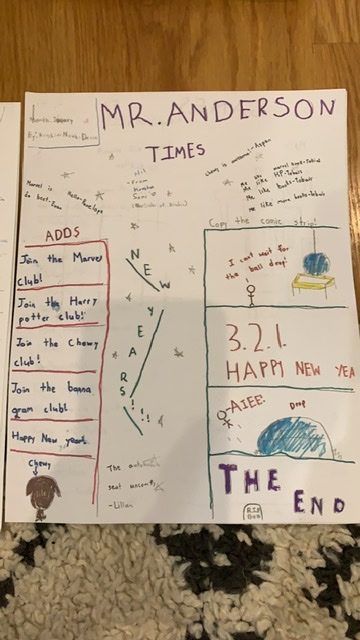 MR. ANDERSON
TIMES
Month: January
By:
Chewy is awesome! -Aspen
Me like
Me like HP-Tobais
Me like books-Tobais
Me like more books-Tobais
Marvel is
da best-
Hello-Penelope
Hi!
-From
ADDS
Join the Marvel
Club!
Join the Harry
potter club!
Join the Chewy
club!
Join the banna
gram club!
Happy New year!
Chewy
NEW
YEARS!!!!
The
seat
-Lillian
Copy the comic strip!
I can't wait for
the ball drop!
3.2.1.
HAPPY NEW YEA
AIEE!
DROP
THE
END
RIP
BOB